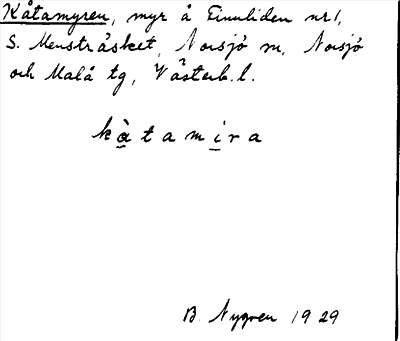 Kåtamyren, myr å Finnliden nr 1,
S. Menstråsket, Norsjö sn, Norsjö
och Malå tg, Västerb. l.
kàtamira
B. Nygren 1929